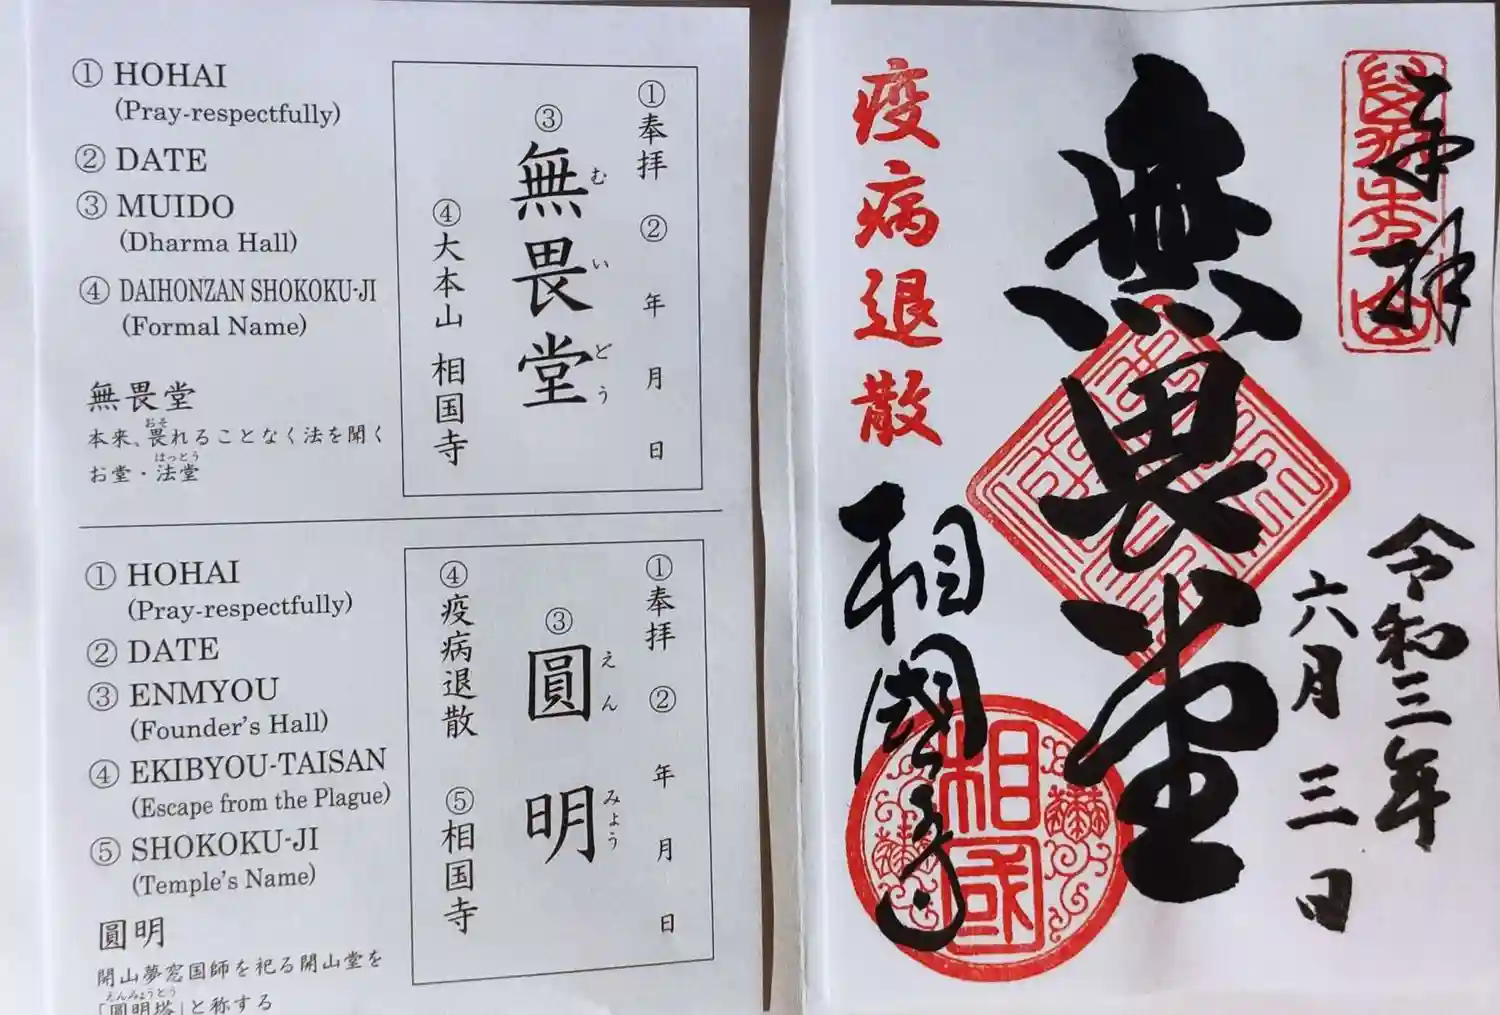 ① HOHAI
(Pray-respectfully)
② DATE
③ MUIDO
(Dharma Hall)
④ DAIHONZAN SHOKOKU-JI
(Formal Name)
無畏堂
本来、畏れることなく法を開く
おそ
お堂・法堂
はっとう
①奉拝 ② 年 月 日
③無畏堂
む い どう
④大本山 相国寺
① HOHAI
(Pray-respectfully)
② DATE
③ ENMYOU
(Founder's Hall)
④ EKIBYOU-TAISAN
(Escape from the Plague)
⑤ SHOKOKU-JI
(Temple's Name)
圓明
開山夢窓国師を祀る開山堂を
えんみょうとう
「圓明塔」と称する
①奉拝 ② 年 月 日
③圓明
えん みょう
④疫病退散 ⑤相国寺
奉拝
令和三年
六月三日
無畏堂
疫病退散
相國寺
相国